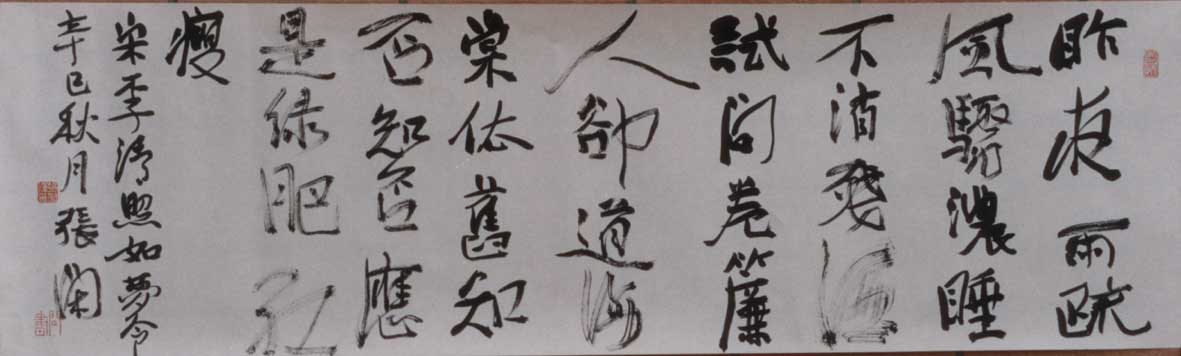 昨夜雨疏
風驟濃睡
不消殘酒
試問卷簾
人卻道海
棠依舊知
否知否應
是綠肥紅
瘦
宋李清照如夢令
辛巳秋月 張